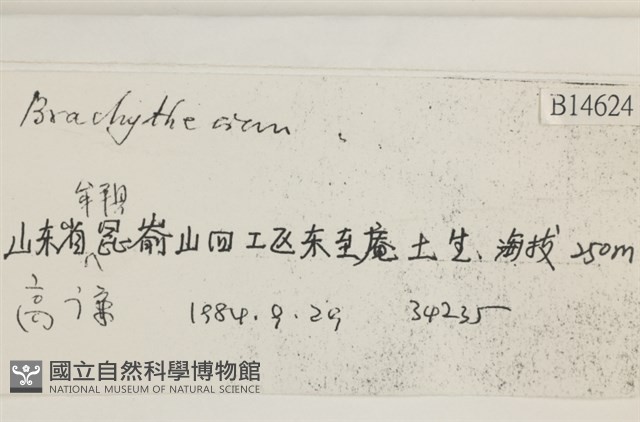 B14624
Brachythecium
牟平县
山东省昆嵛山四工区东至庵土生、海拔 250m
高谦 1984.9.29 34235
國立自然科學博物館
NATIONAL MUSEUM OF NATURAL SCIENCE